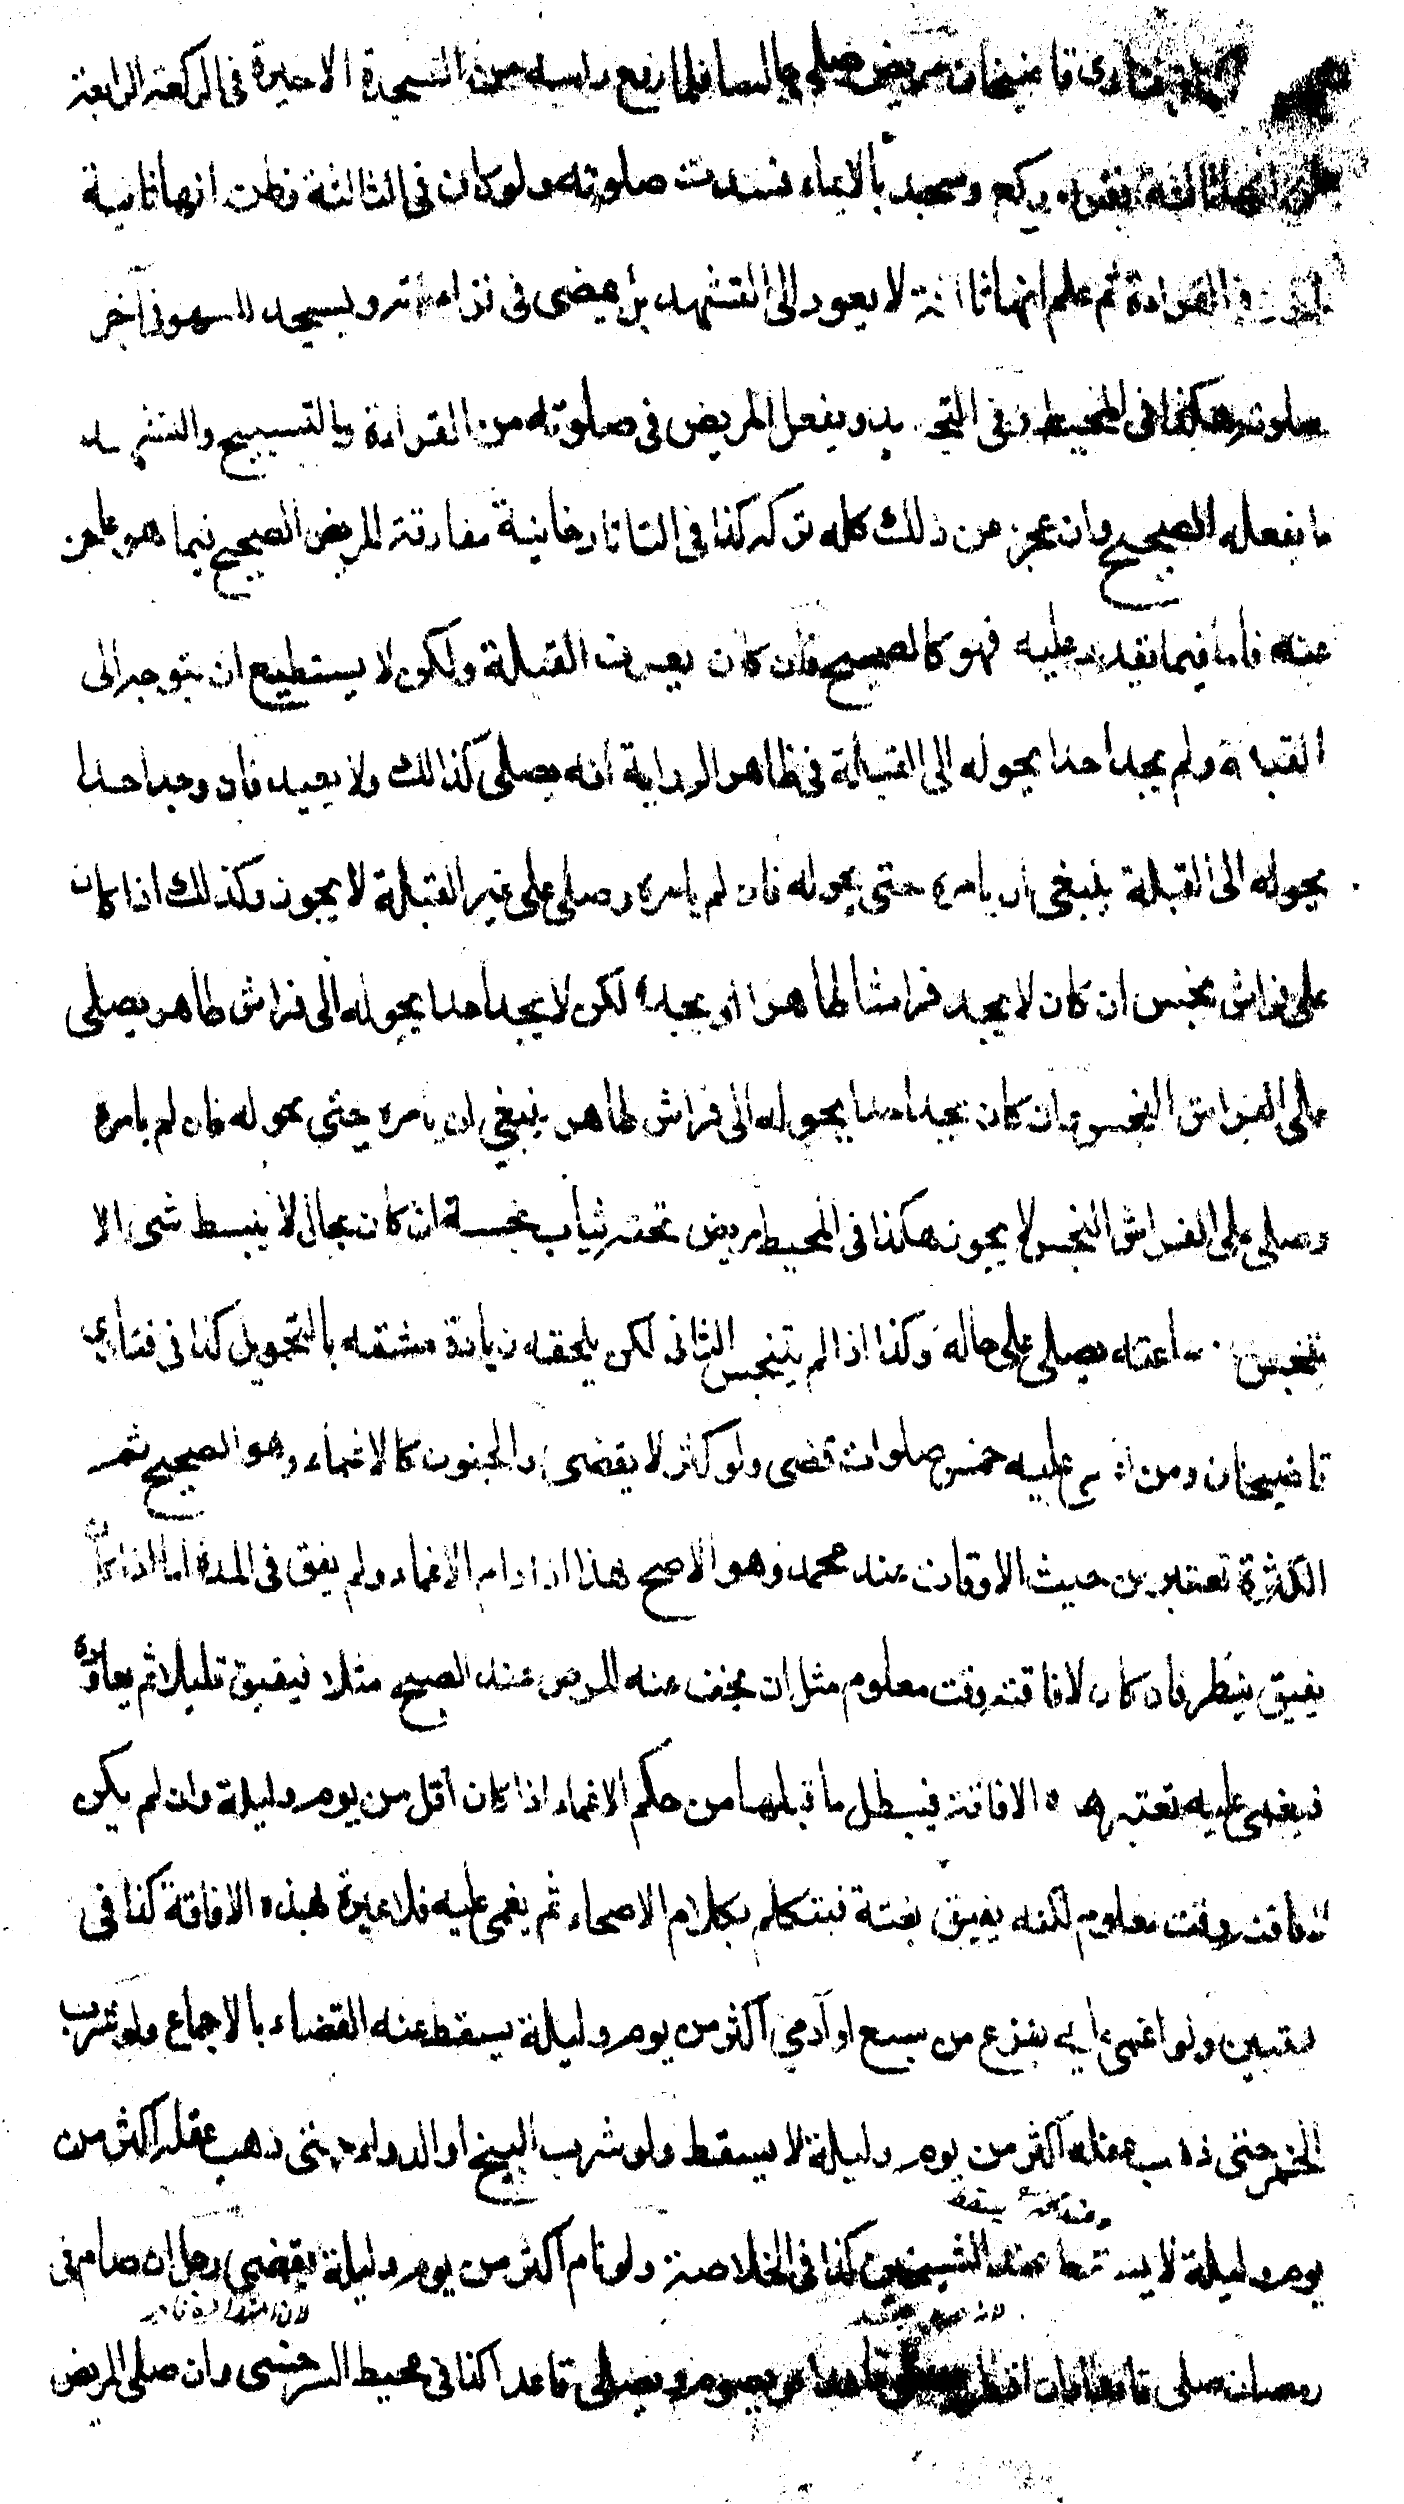 فتاوى قاضيخان مريض صلى جالسا فلما رفع راسه من السجدة الاخيرة فى الركعة الرابعة
ظن انها ثالثة فقرء وركع وسجد بالايماء فسدت صلوته ولو كان فى الثالثة فظن انها ثانية
فى القراءة ثم علم انها ثالثة لا يعود الى التشهد بل يمضى فى قراءته ويسجد للسهو فى آخر
صلوته هكذا فى المحيط وفى التجريد ويفعل المريض فى صلوته من القراءة والتسبيح والتشهد
ما يفعله الصحيح وان عجز عن ذلك كله تركه كذا فى التاتارخانية مفارقة المريض الصحيح فيما هو عاجز
عنه فاما فيما يقدر عليه فهو كالصحيح فان كان يعرف القبلة ولكن لا يستطيع ان يتوجه الى
القبلة ولم يجد احدا يحوله الى القبلة فى ظاهر الرواية انه يصلى كذالك ولا يعيد فان وجد احدا
يحوله الى القبلة ينبغى ان يامره حتى يحوله فان لم يامره وصلى على غير القبلة لا يجوز وكذلك اذا كان
على فراش نجس ان كان لا يجد فراشا طاهرا او يجده لكن لا يجد احدا يحوله الى فراش طاهر يصلى
على الفراش النجس وان كان يجد احدا يحوله الى فراش طاهر ينبغى ان يامره حتى يحوله فان لم يامره
وصلى على الفراش النجس لا يجوز هكذا فى المحيط مريض تحته ثياب نجسة ان كان بحال لا يبسط شى الا
يتنجس ساعته يصلى على حاله وكذا اذا لم يتنجس الثانى لكن يلحقه زيادة مشقه بالتحويل كذا فى فتاوى
قاضيخان ومن اغمى عليه خمس صلوات قضى ولو كثر لا يقضى والجنون كالاغماء وهو الصحيح ثم
الكثرة تعتبر من حيث الاوقات عند محمد وهو الاصح هذا اذا دام الاغماء ولم يفق فى المدة اما اذا كان
يفيق ينظر فان كان لافاقته وقت معلوم مثل ان يخف عنه المرض عند الصبح مثلا فيفيق قليلا ثم يعاوده
فيغمى عليه تعتبر هذه الافاقة فيبطل ما قبلها من حكم الاغماء اذا كان اقل من يوم وليلة وان لم يكن
لافاقته وقت معلوم لكنه يفيق بغتة فيتكلم بكلام الاصحاء ثم يغمى عليه فلا عبرة لهذه الافاقة كذا فى
التبيين ولو اغمى عليه بفزع من سبع او آدمي اكثر من يوم وليلة يسقط عنه القضاء بالاجماع ولو شرب
الخمر حتى ذهب عقله اكثر من يوم وليلة لا يسقط ولو شرب البنج او الدواء حتى ذهب عقله اكثر من
وعند محمد يسقط
يوم وليلة لا يسقط عند الشيخين كذا فى الخلاصة ولو نام اكثر من يوم وليلة يقضى رجل ان صام فى
لان امتداده نادر
رمضان صلى قاعدا وان افطر صلى قائما يصوم ويصلى قاعدا كذا فى محيط السرخسى وان صلى المريض